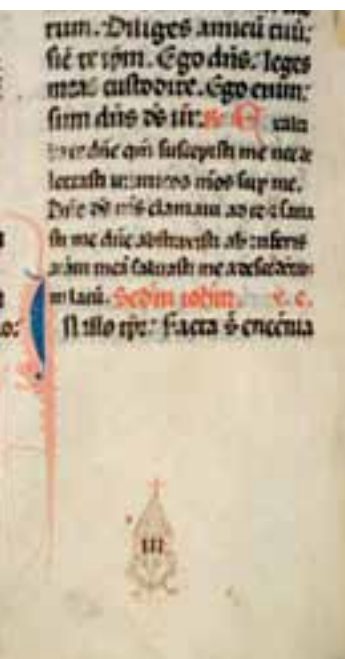 rum. Diliges amicū tuū:
sic̄ te ip̄m. Ego dn̄s. leges
meas custodite. Ego enim:
sum dn̄s ds̄ ur̄. Exalta
bo te dn̄e qm̄ suscepisti me nec de
lectasti inimicos meos sup me.
Dn̄e ds̄ ms̄ clamaui ad te &
sti me dn̄e abstraxisti ab inferis
aīam meā saluasti me a descēdentib
in lacū. Scdm iohm.
N illo tp̄r: Facta s̄ encenia
III